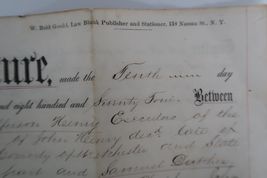 W. Reid Gould, Law Blank Publisher and Stationer, 158 Nassau St., N. Y.
ure, made the Tenth day
nd eight hundred and Seventy Four Between
Henry Executor of the
John Henry decd late of
County of Westchester and State
part and Samuel